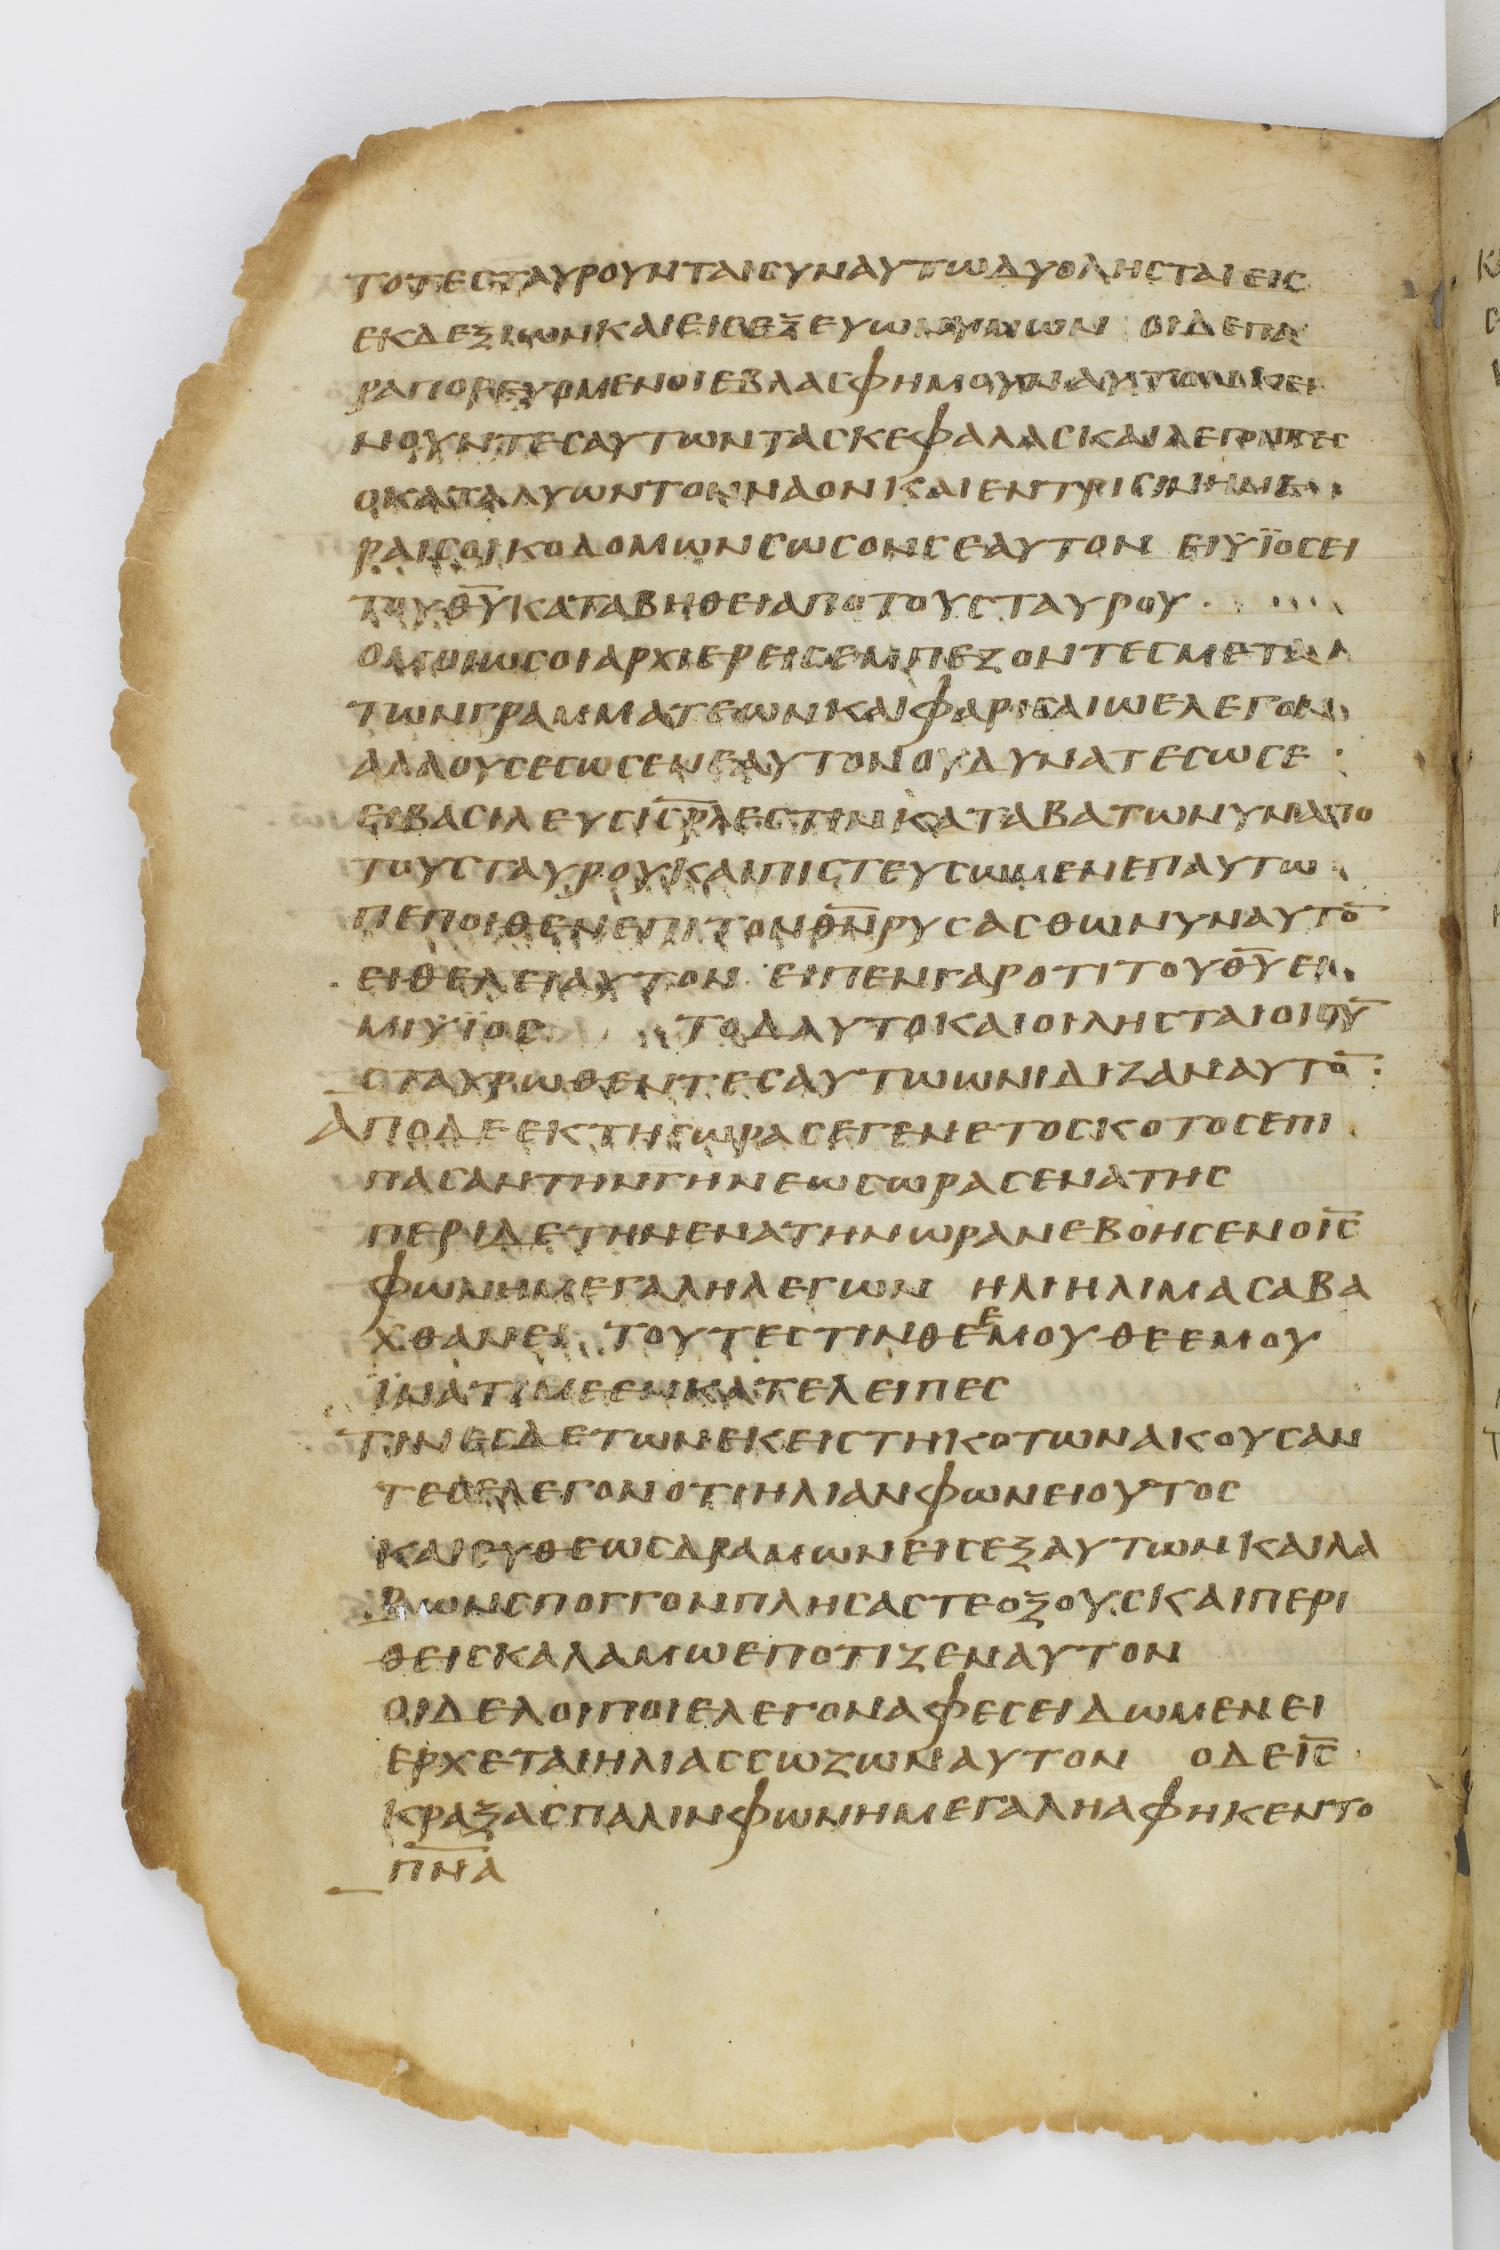 ΤΟΤΕΣΤΑΥΡΟΥΝΤΑΙΣΥΝΑΥΤΩΔΥΟΛΗΣΤΑΙΕΙΣ
ΕΚΔΕΞΙΩΝΚΑΙΕΙΣΕΞΕΥΩΝΥΜΩΝ ΟΙΔΕΠΑ
ΡΑΠΟΡΕΥΟΜΕΝΟΙΕΒΛΑΣΦΗΜΟΥΝΑΥΤΟΝΚΕΙ
ΝΟΥΝΤΕΣΑΥΤΩΝΤΑΣΚΕΦΑΛΑΣΚΑΙΛΕΓΟΝΤΕΣ
ΟΚΑΤΑΛΥΩΝΤΟΝΝΑΟΝΚΑΙΕΝΤΡΙΣΙΝΗΜΕ
ΡΑΙΣΟΙΚΟΔΟΜΩΝΣΩΣΟΝΣΕΑΥΤΟΝ ΕΙΥΪΟΣΕΙ
ΤΟΥΘ̅Υ̅ΚΑΤΑΒΗΘΕΙΑΠΟΤΟΥΣΤΑΥΡΟΥ
ΟΜΟΙΩΣΟΙΑΡΧΙΕΡΕΙΣΕΜΠΕΖΟΝΤΕΣΜΕΤΑ
ΤΩΝΓΡΑΜΜΑΤΕΩΝΚΑΙΦΑΡΙΣΑΙΩΕΛΕΓΟΝ
ΑΛΛΟΥΣΕΣΩΣΕΝΕΑΥΤΟΝΟΥΔΥΝΑΤΕΣΩΣΕ
ΕΙΒΑΣΙΛΕΥΣΙ̅Σ̅Ρ̅Λ̅ΕΣΤΙΝΚΑΤΑΒΑΤΩΝΥΝΑΠΟ
ΤΟΥΣΤΑΥΡΟΥΚΑΙΠΙΣΤΕΥΣΩΜΕΝΕΠΑΥΤΩ
ΠΕΠΟΙΘΕΝΕΠΙΤΟΝΘ̅Ν̅ΡΥΣΑΣΘΩΝΥΝΑΥΤΟ̅
ΕΙΘΕΛΕΙΑΥΤΟΝ ΕΙΠΕΝΓΑΡΟΤΙΤΟΥΘ̅Υ̅ΕΙ
ΜΙΥΪΟΣ ΤΟΔΑΥΤΟΚΑΙΟΙΛΗΣΤΑΙΟΙΣΥ̅
ΣΤΑΥΡΩΘΕΝΤΕΣΑΥΤΩΩΝΙΔΙΖΑΝΑΥΤΟ̅
ΑΠΟΔΕΕΚΤΗΣΩΡΑΣΕΓΕΝΕΤΟΣΚΟΤΟΣΕΠΙ
ΠΑΣΑΝΤΗΝΓΗΝΕΩΣΩΡΑΣΕΝΑΤΗΣ
ΠΕΡΙΔΕΤΗΝΕΝΑΤΗΝΩΡΑΝΕΒΟΗΣΕΝΟΙ̅Σ̅
ΦΩΝΗΜΕΓΑΛΗΛΕΓΩΝ ΗΛΙΗΛΙΜΑΣΑΒΑ
ΧΘΑΝΕΙ ΤΟΥΤΕΣΤΙΝΘΕΕΜΟΥΘΕΕΜΟΥ
ΪΝΑΤΙΜΕΕΝΚΑΤΕΛΕΙΠΕΣ
ΤΙΝΕΣΔΕΤΩΝΕΚΕΙΣΤΗΚΟΤΩΝΑΚΟΥΣΑΝ
ΤΕΣΕΛΕΓΟΝΟΤΙΗΛΙΑΝΦΩΝΕΙΟΥΤΟΣ
ΚΑΙΕΥΘΕΩΣΔΡΑΜΩΝΕΙΣΕΞΑΥΤΩΝΚΑΙΛΑ
ΒΩΝΣΠΟΓΓΟΝΠΛΗΣΑΣΤΕΟΞΟΥΣΚΑΙΠΕΡΙ
ΘΕΙΣΚΑΛΑΜΩΕΠΟΤΙΖΕΝΑΥΤΟΝ
ΟΙΔΕΛΟΙΠΟΙΕΛΕΓΟΝΑΦΕΣΕΙΔΩΜΕΝΕΙ
ΕΡΧΕΤΑΙΗΛΙΑΣΣΩΖΩΝΑΥΤΟΝ ΟΔΕΙ̅Σ̅
ΚΡΑΞΑΣΠΑΛΙΝΦΩΝΗΜΕΓΑΛΗΑΦΗΚΕΝΤΟ
Π̅Ν̅Α̅